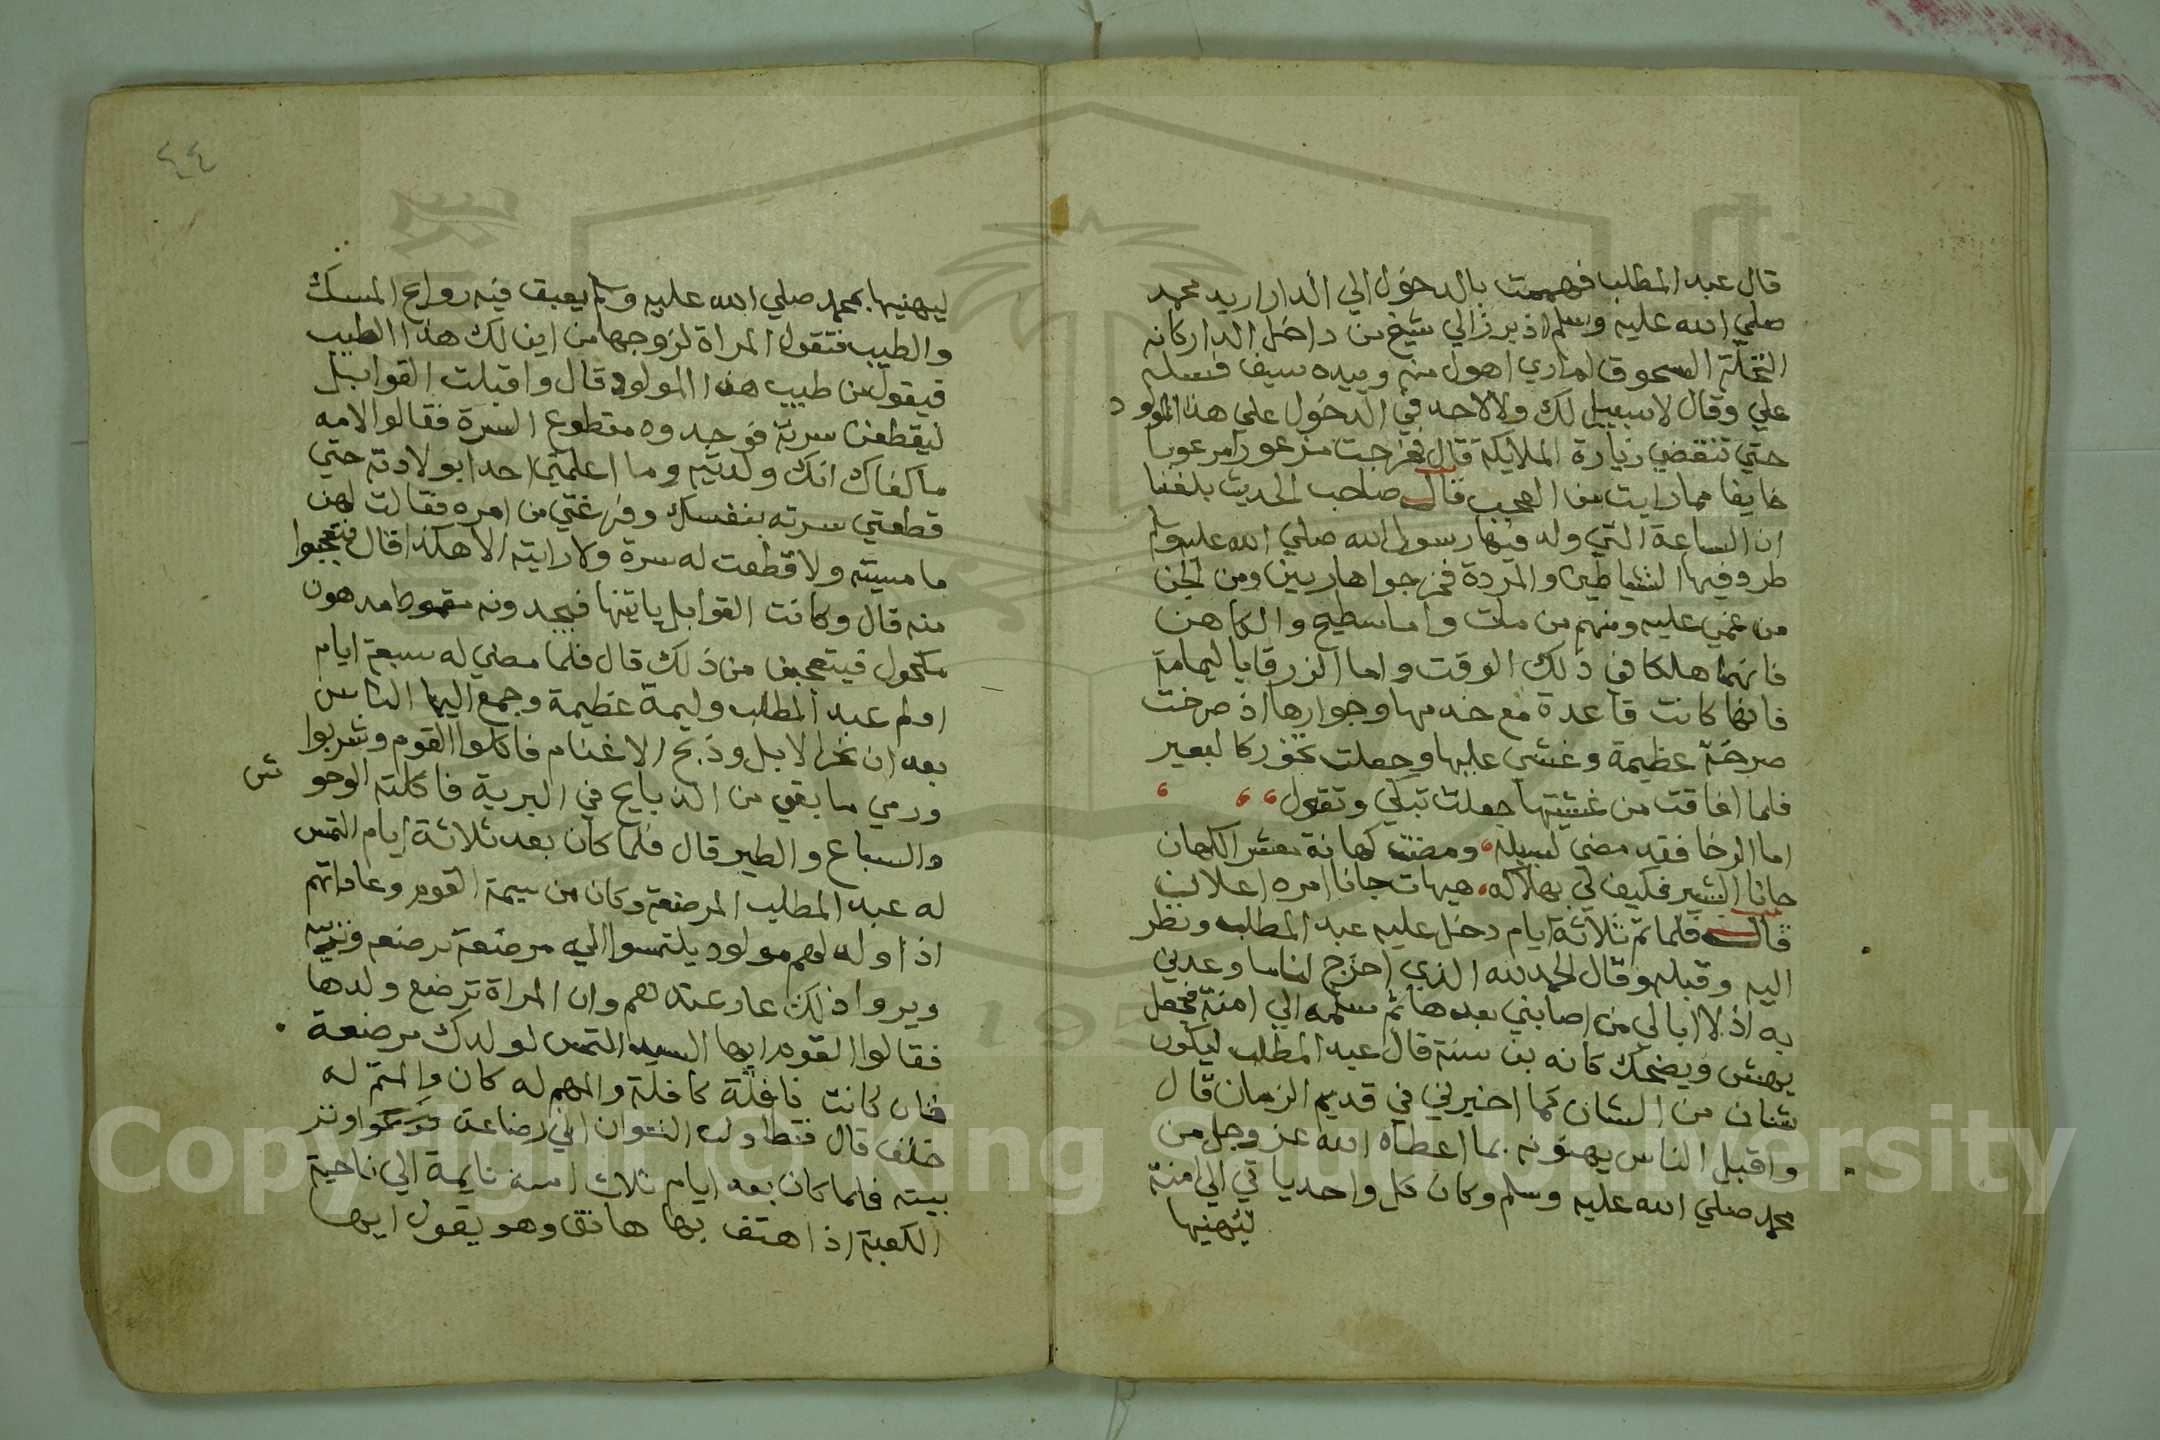 قال عبد المطلب فهممت بالدخول الي الدار اريد محمد
صلي الله عليه وسلم اذ برز الي شيخ من داخل الدار كانه
النخلة السحوق لم اري اهول منه وبيده سيف فسله
علي وقال لا سبيل لك ولا لاحد في الدخول علي هذا المولود
حتي تنقضي زيارة الملايكة قال فخرجت مذعورا مرعوبا
خايفا مما رايت من العجب قال صاحب الحديث بلغنا
ان الساعة التي ولد فيها رسول الله صلي الله عليه وسلم
طردفيها الشياطين والمردة فخرجوا هاربين ومن الجن
من غمي عليه ومنهم من مات واما سطيح والكاهن
فانهما هلكا في ذلك الوقت واما الزرقا باليمامة
فانها كانت قاعدة مع خدمها وجوارها اذ صرخت
صرخة عظيمة وغشي عليها وجعلت تخور كالبعير
فلما افاقت من غشيتها جعلت تبكي وتقول
اما الرخا فقد مضي لسبيله ومضت كهانة معشر الكهان
جانا البشير فكيف لي بهلاكه هيهات جانا امره اعلان
قال فلما تم ثلاثة ايام دخل عليه عبد المطلب ونظر
اليه وقبله وقال الحمد لله الذي اخرج لنا ما وعدني
به اذ لا ابالي من اصابني بعدها ثم سلمه الي امنة فجعل
يهش ويضحك كانه بن سنة قال عبد المطلب ليكون
شان من الشان كما اخبرني في قديم الزمان قال
واقبل الناس يهنونه بما اعطاه الله عز وجل من
محمد صلي الله عليه وسلم وكان كل واحد ياتي الي امنة
ليهنيها
٤٤
ليهنيها بمحمد صلي الله عليه وسلم يعبق فيه روايح المسك
والطيب فتقول المراة لزوجها من اين لك هذا الطيب
فيقول من طيب هذا المولود قال واقبلت القوابل
ليقطعن سرته فوجدوه مقطوع السرة فقالوا لامه
ما كفاك انك ولدتيه وما اعلمتي احدا بولادته حتي
قطعتي سرته بنفسك وفرغتي من امره فقالت لهن
ما مسيته ولا قطعت له سرة ولا رايته الا هكذا قال فتعجبوا
منه قال وكانت القوابل ياتنها فيجدونه مقموط مدهون
مكحول فيتعجبن من ذلك قال فلما مضي له سبعة ايام
اولم عبد المطلب وليمة عظيمة وجمع اليها الناس
بعد ان نحر الابل وذبح الاغنام فاكلوا القوم وشربوا
ورمي ما بقي من الذبايح في البرية فاكلته الوحوش
والسباع والطير قال فلما كان بعد ثلاثة ايام التمس
له عبد المطلب المرضعة وكان من سيمة القوم وعاداتهم
اذا ولد لهم مولود يلتمسوا اليه مرضعة ترضعه وتربيه
ويروا ذلك عار عندهم وان المراة ترضع ولدها
فقالوا القوم ايها السيد التمس لولدك مرضعة
فان كانت كافلة والمهم له كان والمتم له
خلف قال فتطاولت النسوان الي رضاعة
بيته فلما كان بعد ايام ثلاث امنة نايمة الي ناحية
الكعبة اذا هتف بها هاتف وهو يقول ايها